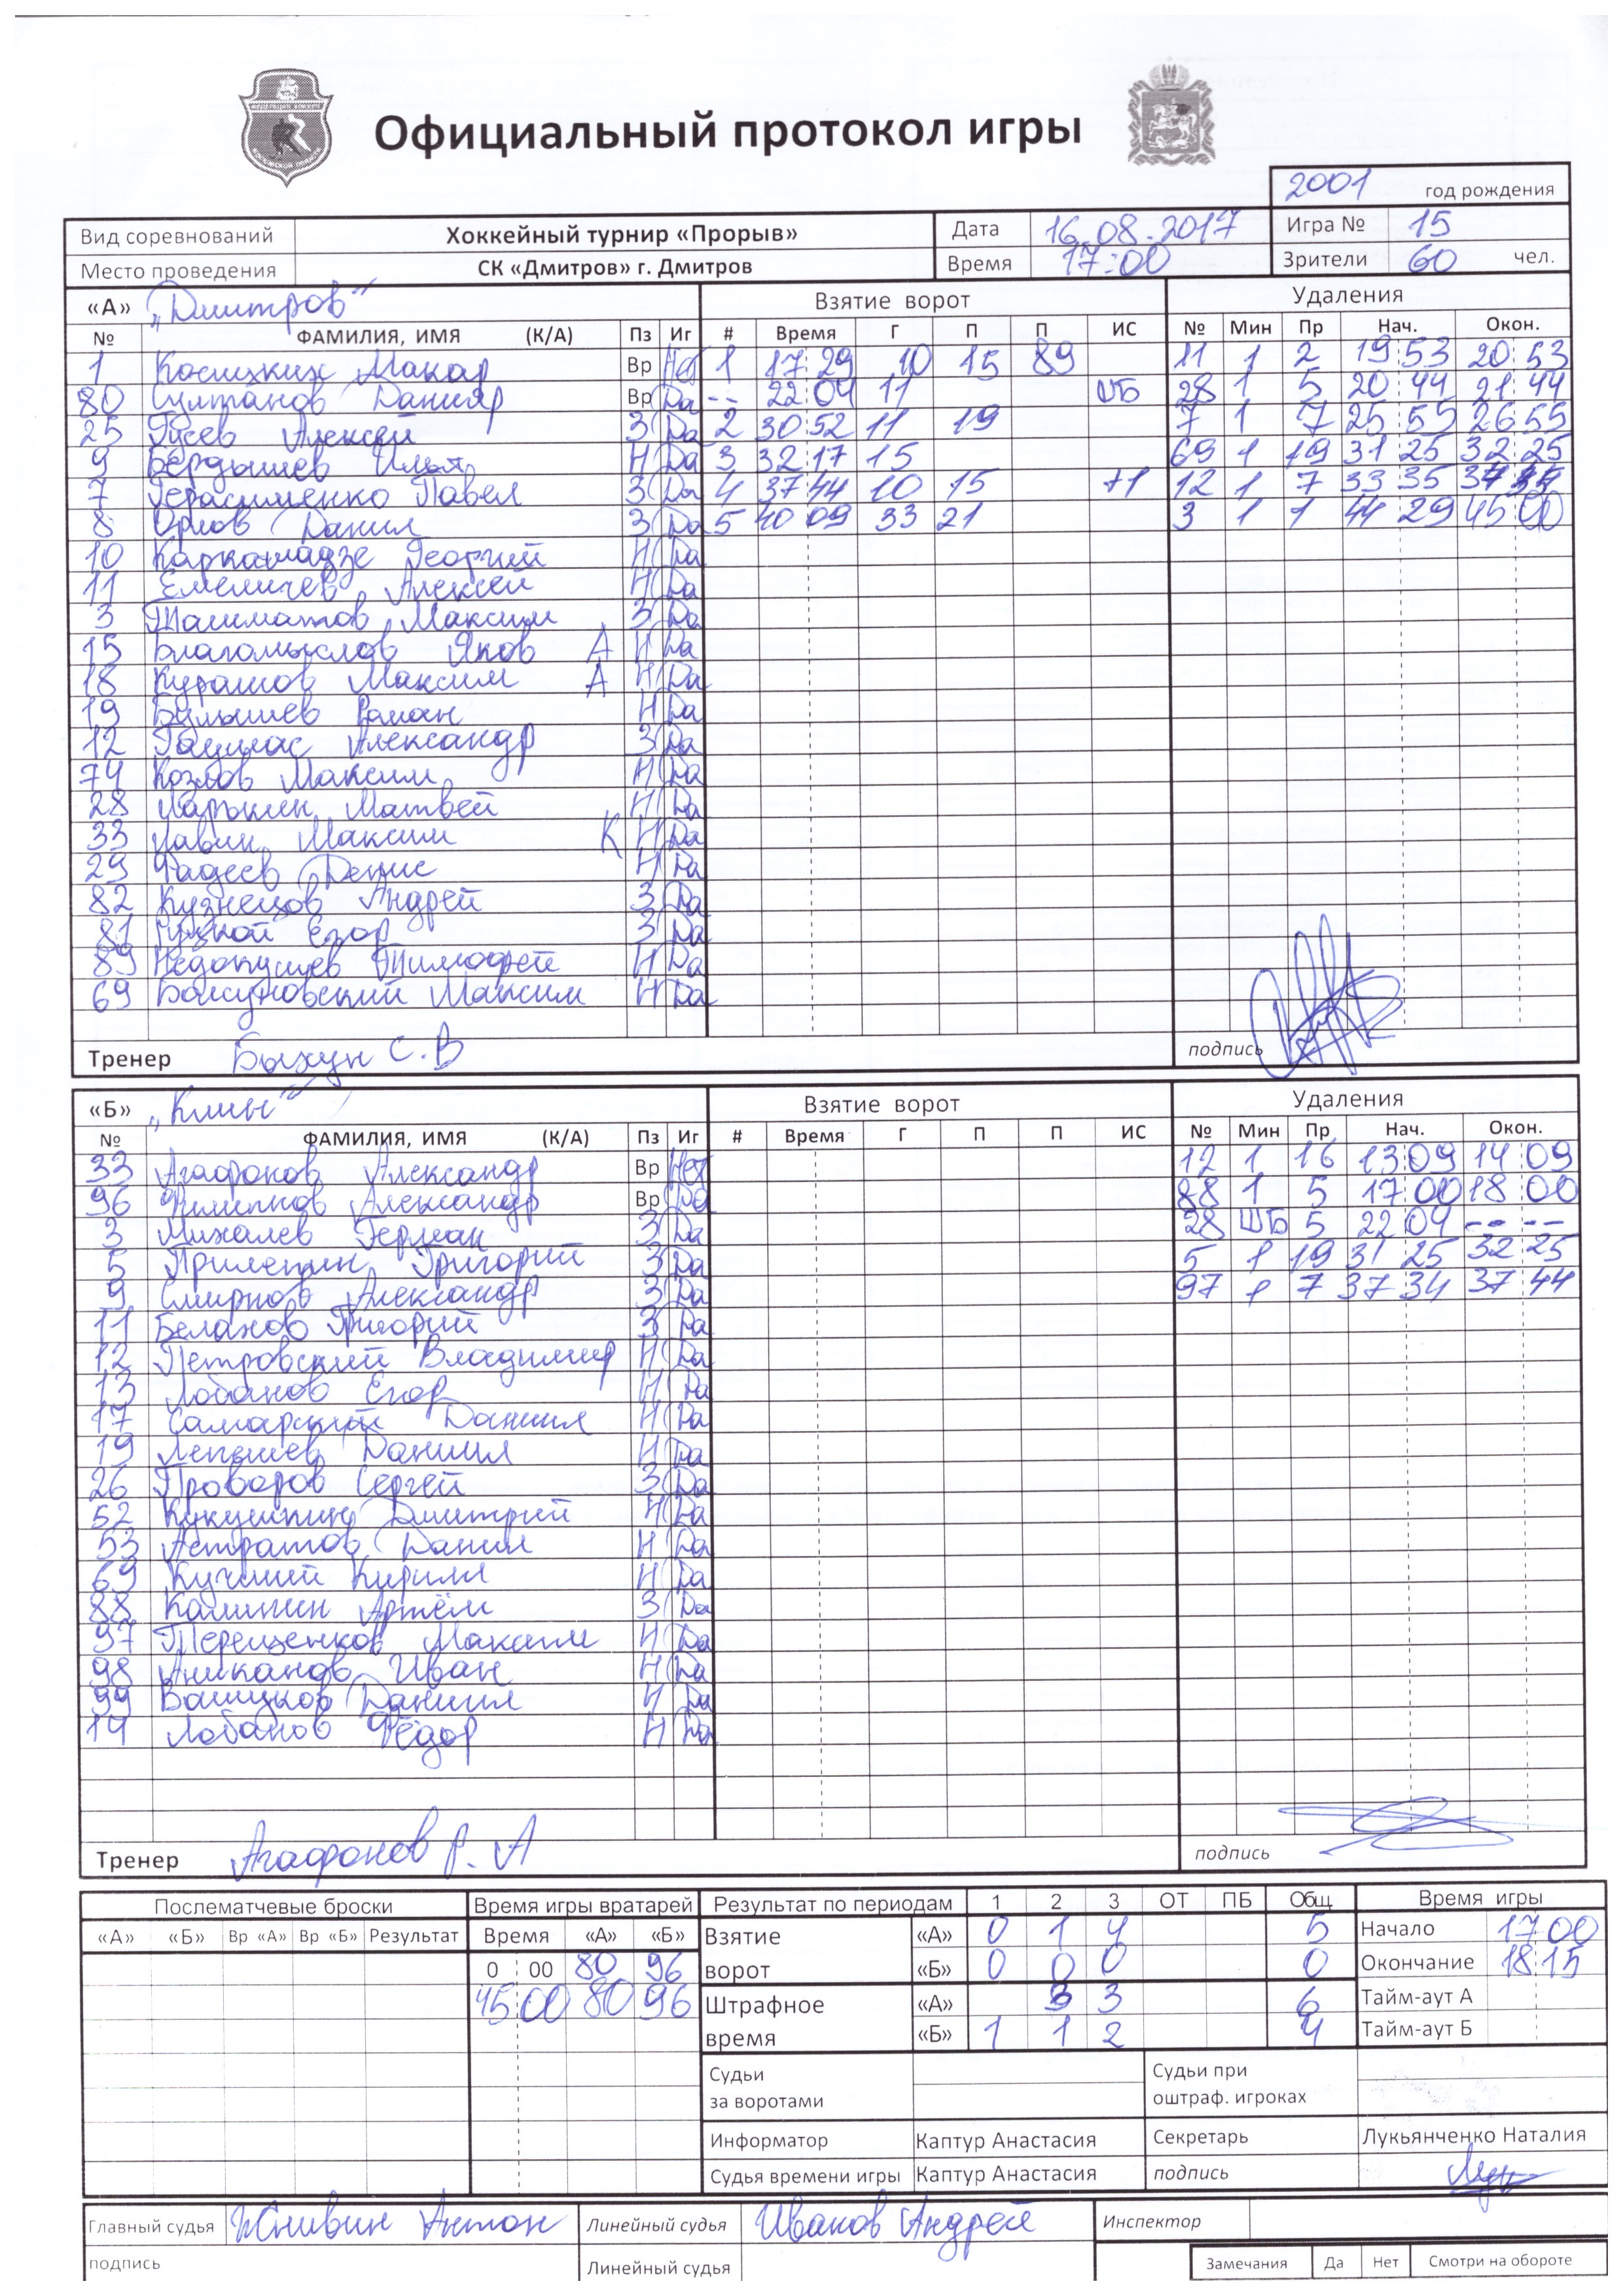 Официальный протокол игры
2001 год рождения
Вид соревнований Хоккейный турнир «Прорыв» Дата 16.08.2017 Игра № 15
Место проведения СК «Дмитров» г. Дмитров Время 17:00 Зрители 60 чел.
«А» „Дмитров“ Взятие ворот Удаления
№ ФАМИЛИЯ, ИМЯ (К/А) Пз Иг # Время Г П П ИС № Мин Пр Нач. Окон.
1 Макар Вр Нет 1 17 29 10 15 89 11 1 2 19 53 20 53
80 Султанов Данияр Вр Да -- 22 04 11 ШБ 28 1 5 20 44 21 44
25 Гусев Алексей З Да 2 30 52 11 19 7 1 7 25 55 26 55
9 Бердышев Илья Н Да 3 32 17 15 69 1 19 31 25 32 25
7 Герасименко Павел З Да 4 37 44 10 15 +1 12 1 7 33 35
8 Орлов Данил З Да 5 40 09 33 21 3 1 1 44 29 45 00
10 Каркашадзе Георгий Н Да
11 Емеличев Алексей Н Да
3 Ташматов Максим З Да
15 Благомыслов Яков А Н Да
18 Курашов Максим А Н Да
19 Булышев Роман Н Да
12 Александр З Да
74 Козлов Максим Н Да
28 Ларькин Матвей Н Да
33 Лавин Максим К Н Да
29 Фадеев Денис Н Да
82 Кузнецов Андрей З Да
81 Егор З Да
89 Недопушев Тимофей Н Да
69 Максим Н Да
Тренер Быхун С.В подпись
«Б» „Клин“ Взятие ворот Удаления
№ ФАМИЛИЯ, ИМЯ (К/А) Пз Иг # Время Г П П ИС № Мин Пр Нач. Окон.
33 Агафонов Александр Вр Нет 12 1 16 13 09 14 09
96 Филиппов Александр Вр Да 88 1 5 17 00 18 00
3 Михалев Герман З Да 28 ШБ 5 22 04 -- --
5 Прилепин Григорий З Да 5 1 19 31 25 32 25
9 Смирнов Александр З Да 97 1 7 37 34 37 44
11 Беланов Григорий З Да
12 Петровский Владимир Н Да
13 Лобанов Егор Н Да
17 Самарский Даниил Н Да
19 Лепешев Даниил Н Да
26 Проворов Сергей З Да
52 Кукушкин Дмитрий Н Да
53 Астратов Данил Н Да
69 Кучший Кирилл Н Да
88 Калинин Артём З Да
97 Терещенков Максим Н Да
98 Аниканов Иван Н Да
99 Вашуков Даниил Н Да
14 Лобанов Фёдор Н Да
Тренер Агафонов Р. А подпись
Послематчевые броски Время игры вратарей Результат по периодам 1 2 3 ОТ ПБ Общ Время игры
«А» «Б» Вр «А» Вр «Б» Результат Время «А» «Б» Взятие ворот «А» 0 1 4 5 Начало 17 00
0 00 80 96 «Б» 0 0 0 0 Окончание 18 15
45 00 80 96 Штрафное время «А» 3 3 6 Тайм-аут А
«Б» 1 1 2 4 Тайм-аут Б
Судьи за воротами Судьи при оштраф. игроках
Информатор Каптур Анастасия Секретарь Лукьянченко Наталия
Судья времени игры Каптур Анастасия подпись
Главный судья Жнивин Антон Линейный судья Иванов Андрей Инспектор
подпись Линейный судья Замечания Да Нет Смотри на обороте